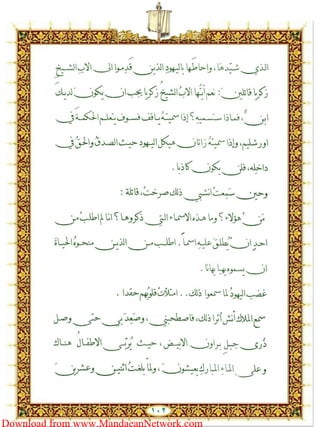 الذي شيّدها، واحاطها باليهود الذين قدموا الى الاب الشيخ
زكريا قائلين: نعم أيّها الابُ الشيخُ زكريا يجب ان يكون لديك
ابنٌ، فماذا ستسميه؟ إذا سمّيتهُ ياقف فسوف يتعلم الحكمة في
اورشليم، وإذا سمّيتهُ زاتان هيكل اليهود حيث الصدقُ والحقُ في
داخله، فلن يكون كاذبا.
وحين سمِعتْ انشبي ذلك صرختْ، قائلة:
مَنْ هؤلاء؟ وما هذه الاسماء التي ذكروها؟ انا لم اطلب من
احدٍ ان يُطلقَ عليه اسماً. اطلب من الذين منحوهُ الحياة
ان يسموه يهيا يهانا.
غضب اليهودُ لما سمعوا ذلك.. امتلأتْ قلوبُهم حقدا.
سمع الملاك أنُش أثرا ذلك، فاصطحبني، وصعد بي حتى وصل
ذُرى جبل براون الابيض، حيث يُربّى الاطفالُ هناك
وعلى الماء المبارك يعيشون. ولمّا بلغتُ اثنين وعشرين
١٠٢
Download from www.MandaeanNetwork.com